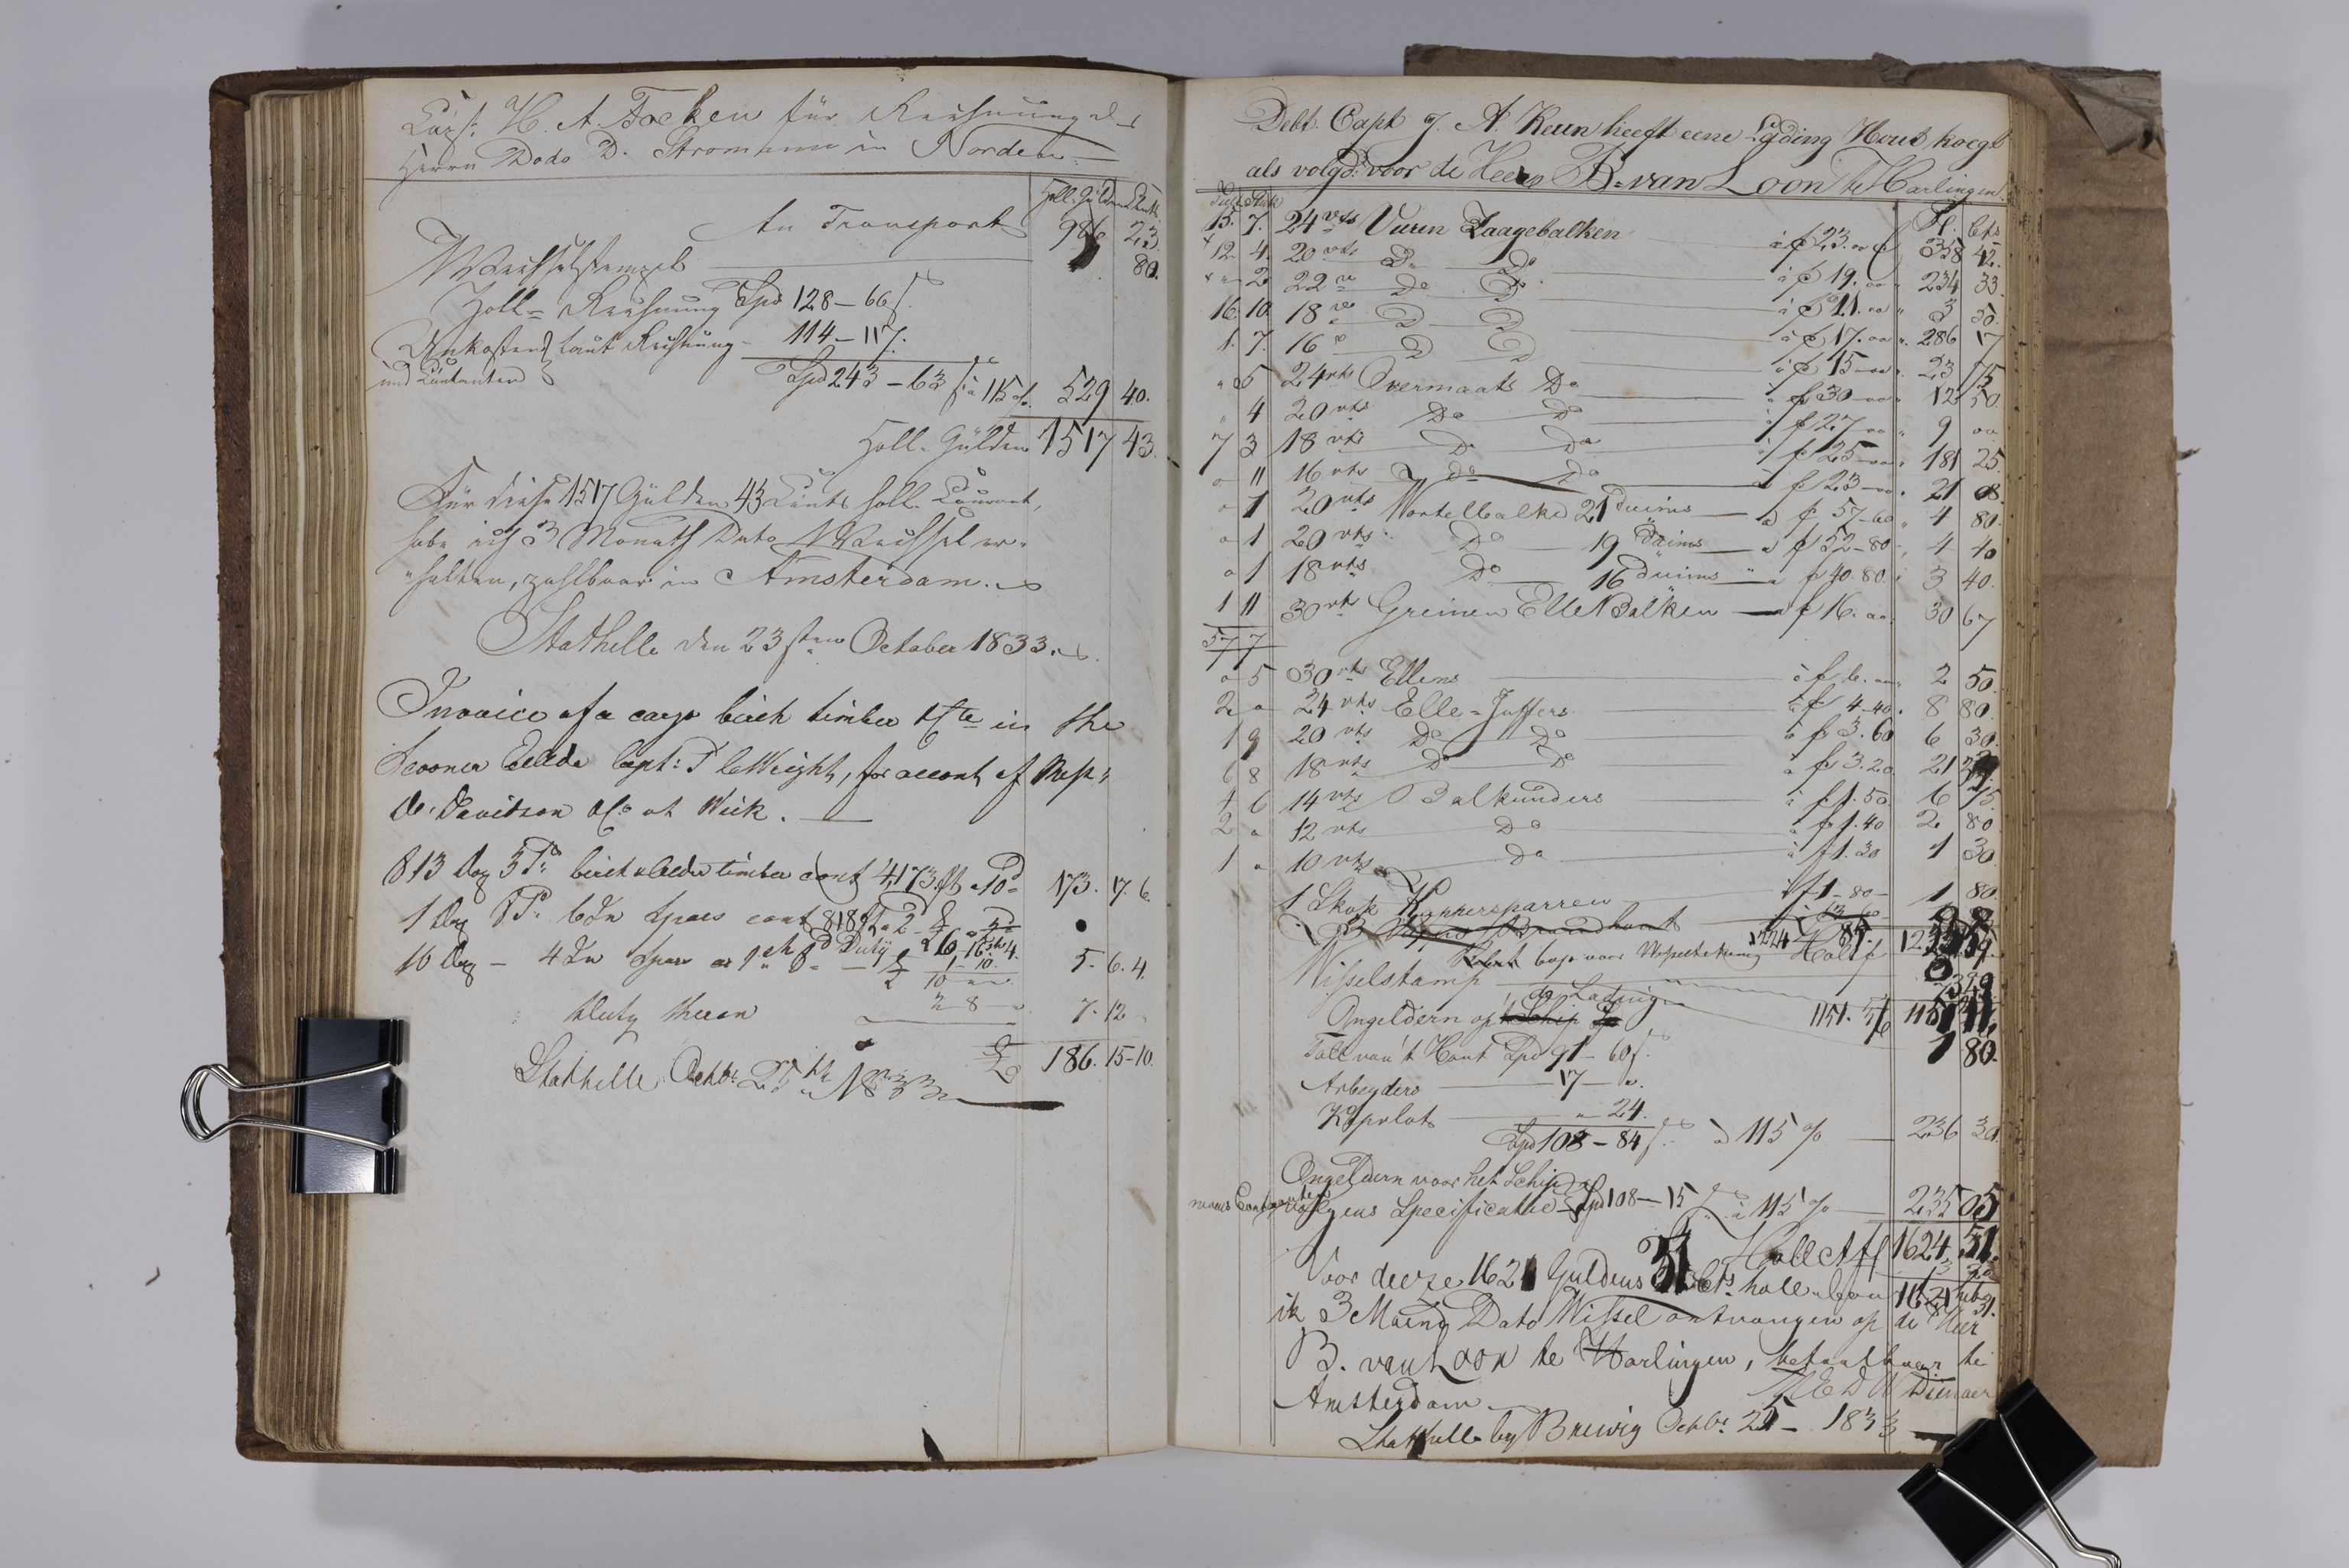 Capt. H. A. Focken für Rechnung des
Herrn Dodo D. Stromann in Norden
Holl. Gulden Cents.
An Transport 986 23.
Wechselstempel 80.
Zoll-Rechnung Spd 128 — 66 ſ
Unkosten laut Rechnung 114 — 117.
und Contanten Spd 243 — 63 ſ à 115 %. 529 40.
Holl. Gulden 1517 43.
Für diese 1517 Gulden 43 Cents holl. Courant,
habe ich 3 Monath Dato Wechsel er-
halten, zahlbar in Amsterdam.
Stathelle den 23sten October 1833.
Invoice of a cargo birch timber &c in the
Scooner Capt: Wright, for accont of Mess:
Davidson & Co at Wick.
813 Dog 3 Ps birch & alder timber cont 4,173 ft a 10d 173. 17. 6.
1 Dog 8 Ps 6 In Spars cont 818 ft a 2d
10 Dog — 4 In Spars 5. 6. 4.
Duty theron 7. 12
£ 186. 15-10.
Stathelle Octbr 25th 1833
Debt. Capt J. A. Keun heeft eene Lading Hout koegt
als volgd: voor de Heer B. van Loon te Harlingen.
15. 7. 24 vts Vuren Zaagebalken à f 23. oo 358 42.
12 4. 20 vts Do Do à f 19. oo 234 33.
2. 22 vts Do Do à f 21. oo 3 50.
16 10 18 vts D D à f 17. oo 286 17
1. 7. 16 D D à f 15 - oo 23 75
5 24 vts Overmaats Do à f 30 - oo 12 50
4 20 vts Do Do à f 27 - oo 9 oo
7 3 18 vts D Do à f 25 - oo 181 25.
11 16 vts Do Do à f 23 - oo 21 08.
1 20 vts Wortelbalke 21 duims à f 57-60 4 80.
1 20 vts Do 19 duims à f 52-80 4 40
1 18 vts Do 16 duims à f 40.80. 3 40.
1 11 30 vts Greinen Elle Balken à f 16. oo. 30 67
57 7
5 30 vts Ellens à f 6. oo 2 50.
2 24 vts Elle-Juffers à f 4-40. 8 80
1 9 20 vts Do Do à f 3.60 6 30.
6 8 18 vts Do Do à f 3.20 21
4 6 14 vts Balkunders à f 1.50. 6 75.
2 12 vts Do à f 1.40 2 80
1 10 vts Do à f 1.30 1 30
1 Skok Koppersparren à f 1-80 1 80.
Wisselstamp
Ongeldern op de Lading 1151. 1151
1 80.
Toll van't Hout Spd 91 — 60 ſ.
Arbeyders 17
24.
Spd 108 — 84 ſ à 115 % 236 30
Ongeldern voor het Schip
volgens Specificatie Spd 108 — 15 à 115 % 235 05
Holl Ct f 1624. 51.
Voor deeze 1621 Guldens 31 Cts holl. Cour heb
1621 31.
ik 3 Maend Dato Wissel ontvangen op de Heer
B. van Loon te Harlingen, betaalbaar te
Amsterdam.
U E D W Dienaer
Stathelle by Brewig Octbr 25 — 1833